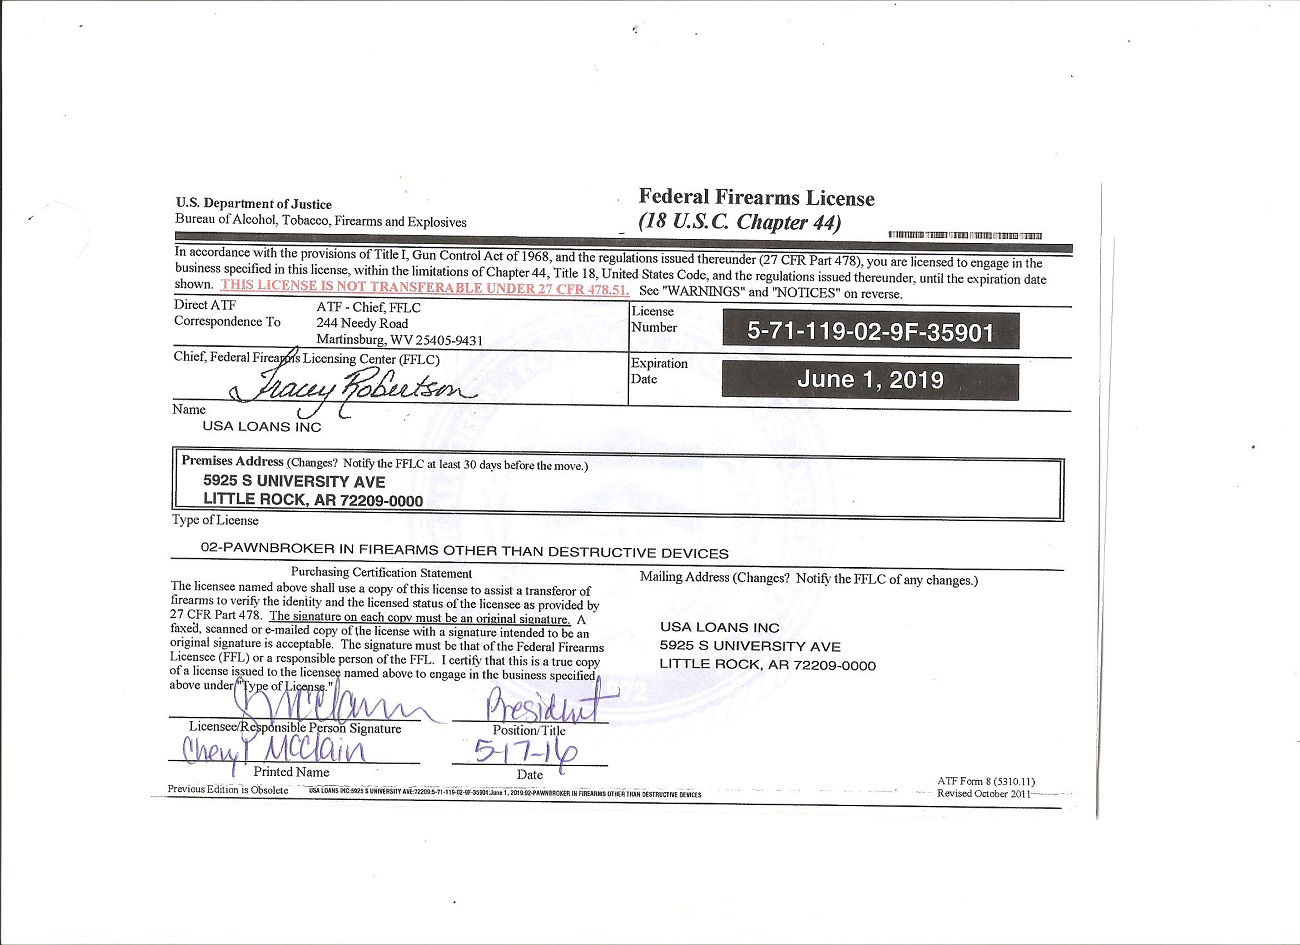 U.S. Department of Justice
Bureau of Alcohol, Tobacco, Firearms and Explosives
Federal Firearms License
(18 U.S.C. Chapter 44)
In accordance with the provisions of Title I, Gun Control Act of 1968, and the regulations issued thereunder (27 CFR Part 478), you are licensed to engage in the
business specified in this license, within the limitations of Chapter 44, Title 18, United States Code, and the regulations issued thereunder, until the expiration date
shown. THIS LICENSE IS NOT TRANSFERABLE UNDER 27 CFR 478.51. See "WARNINGS" and "NOTICES" on reverse.
Direct ATF
Correspondence To
ATF - Chief, FFLC
244 Needy Road
Martinsburg, WV 25405-9431
License
Number
5-71-119-02-9F-35901
Chief, Federal Firearms Licensing Center (FFLC)
Tracey Robertson
Expiration
Date
June 1, 2019
Name
USA LOANS INC
Premises Address (Changes? Notify the FFLC at least 30 days before the move.)
5925 S UNIVERSITY AVE
LITTLE ROCK, AR 72209-0000
Type of License
02-PAWNBROKER IN FIREARMS OTHER THAN DESTRUCTIVE DEVICES
Purchasing Certification Statement
The licensee named above shall use a copy of this license to assist a transferor of
firearms to verify the identity and the licensed status of the licensee as provided by
27 CFR Part 478. The signature on each copy must be an original signature. A
faxed, scanned or e-mailed copy of the license with a signature intended to be an
original signature is acceptable. The signature must be that of the Federal Firearms
Licensee (FFL) or a responsible person of the FFL. I certify that this is a true copy
of a license issued to the licensee named above to engage in the business specified
above under "Type of License."
Mailing Address (Changes? Notify the FFLC of any changes.)
USA LOANS INC
5925 S UNIVERSITY AVE
LITTLE ROCK, AR 72209-0000
McClain
President
Licensee/Responsible Person Signature
Position/Title
Cheryl McClain
5-17-16
Printed Name
Date
Previous Edition is Obsolete
USA LOANS INC:5925 S UNIVERSITY AVE:72209:5-71-119-02-9F-35901:June 1, 2019:02-PAWNBROKER IN FIREARMS OTHER THAN DESTRUCTIVE DEVICES
ATF Form 8 (5310.11)
Revised October 2011